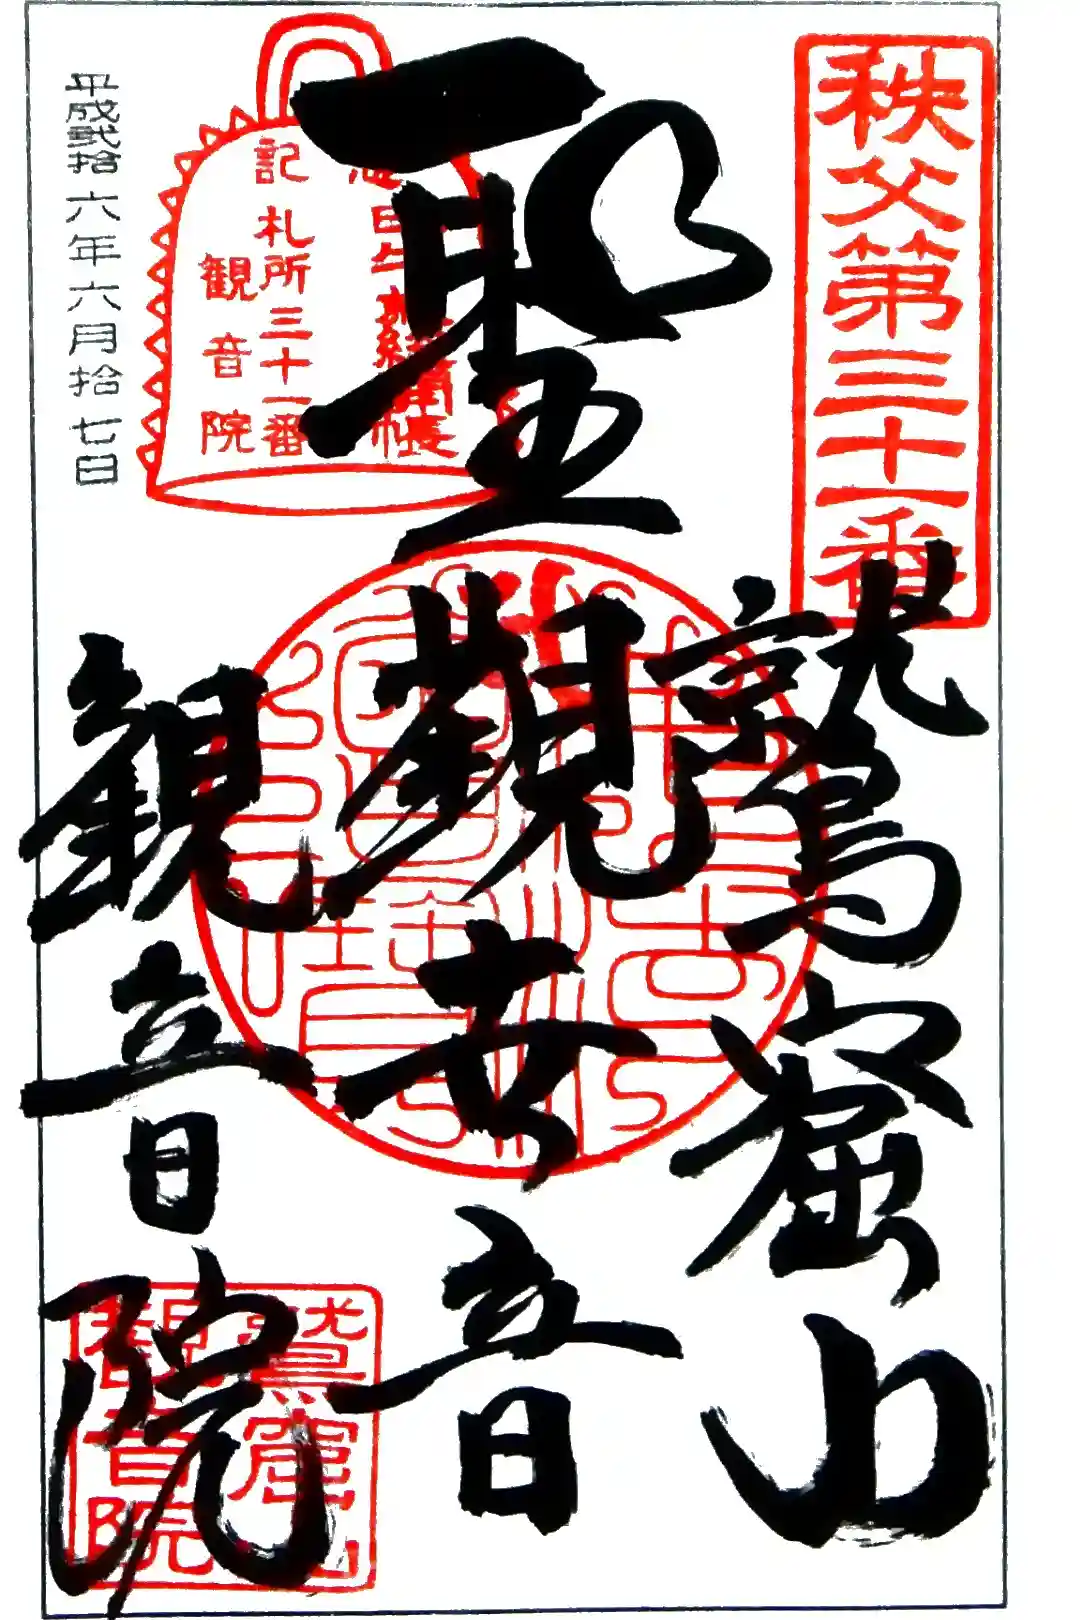 秩父第三十一番
鷲窟山
聖観世音
観音院
記
札所三十一番
観音院
鷲窟山
観音院
平成弐拾六年六月拾七日